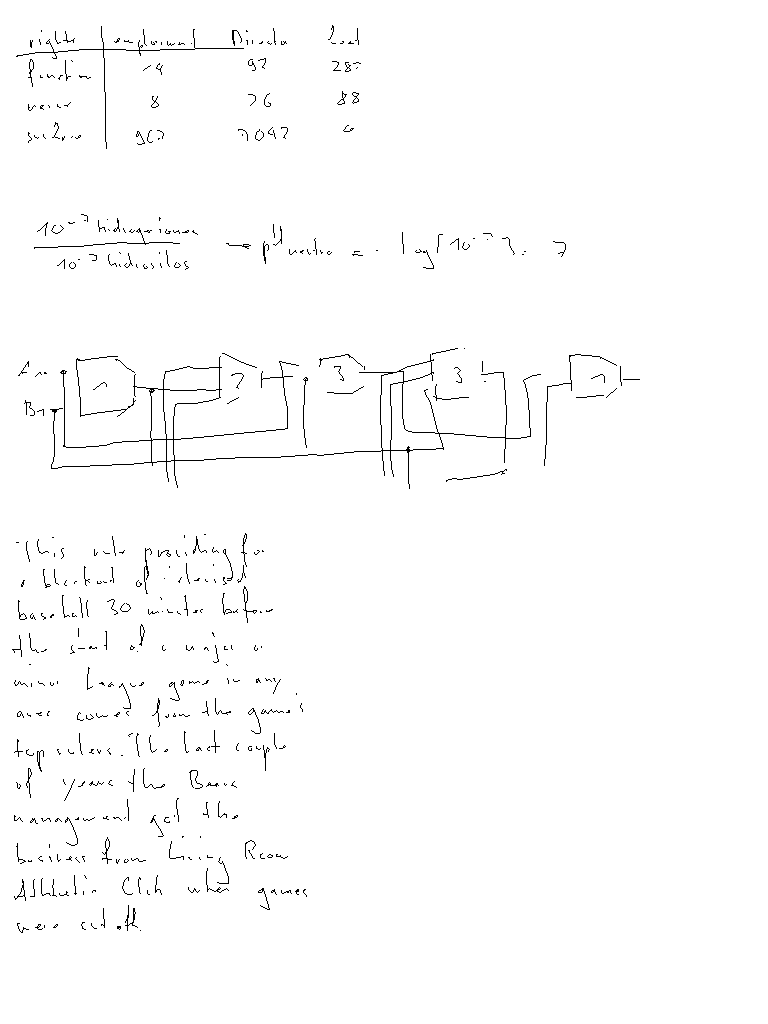 rights employment Director Lost
function 14 97
8 76 88
967 7047
10⁻⁷ hidrogeniones
10⁻⁷ hidroxilos → pH = - log[10⁻⁷] = 7
1 2 3 3 1
B1
This rule providing for
a blackout of televised
baseball 30 minutes before
the start of a major or
minor League game in any
area comes from the game's
top rulers. The last couple
of years the Bears
management got the
business from Living Room
Athletic Club when games
were cut off.